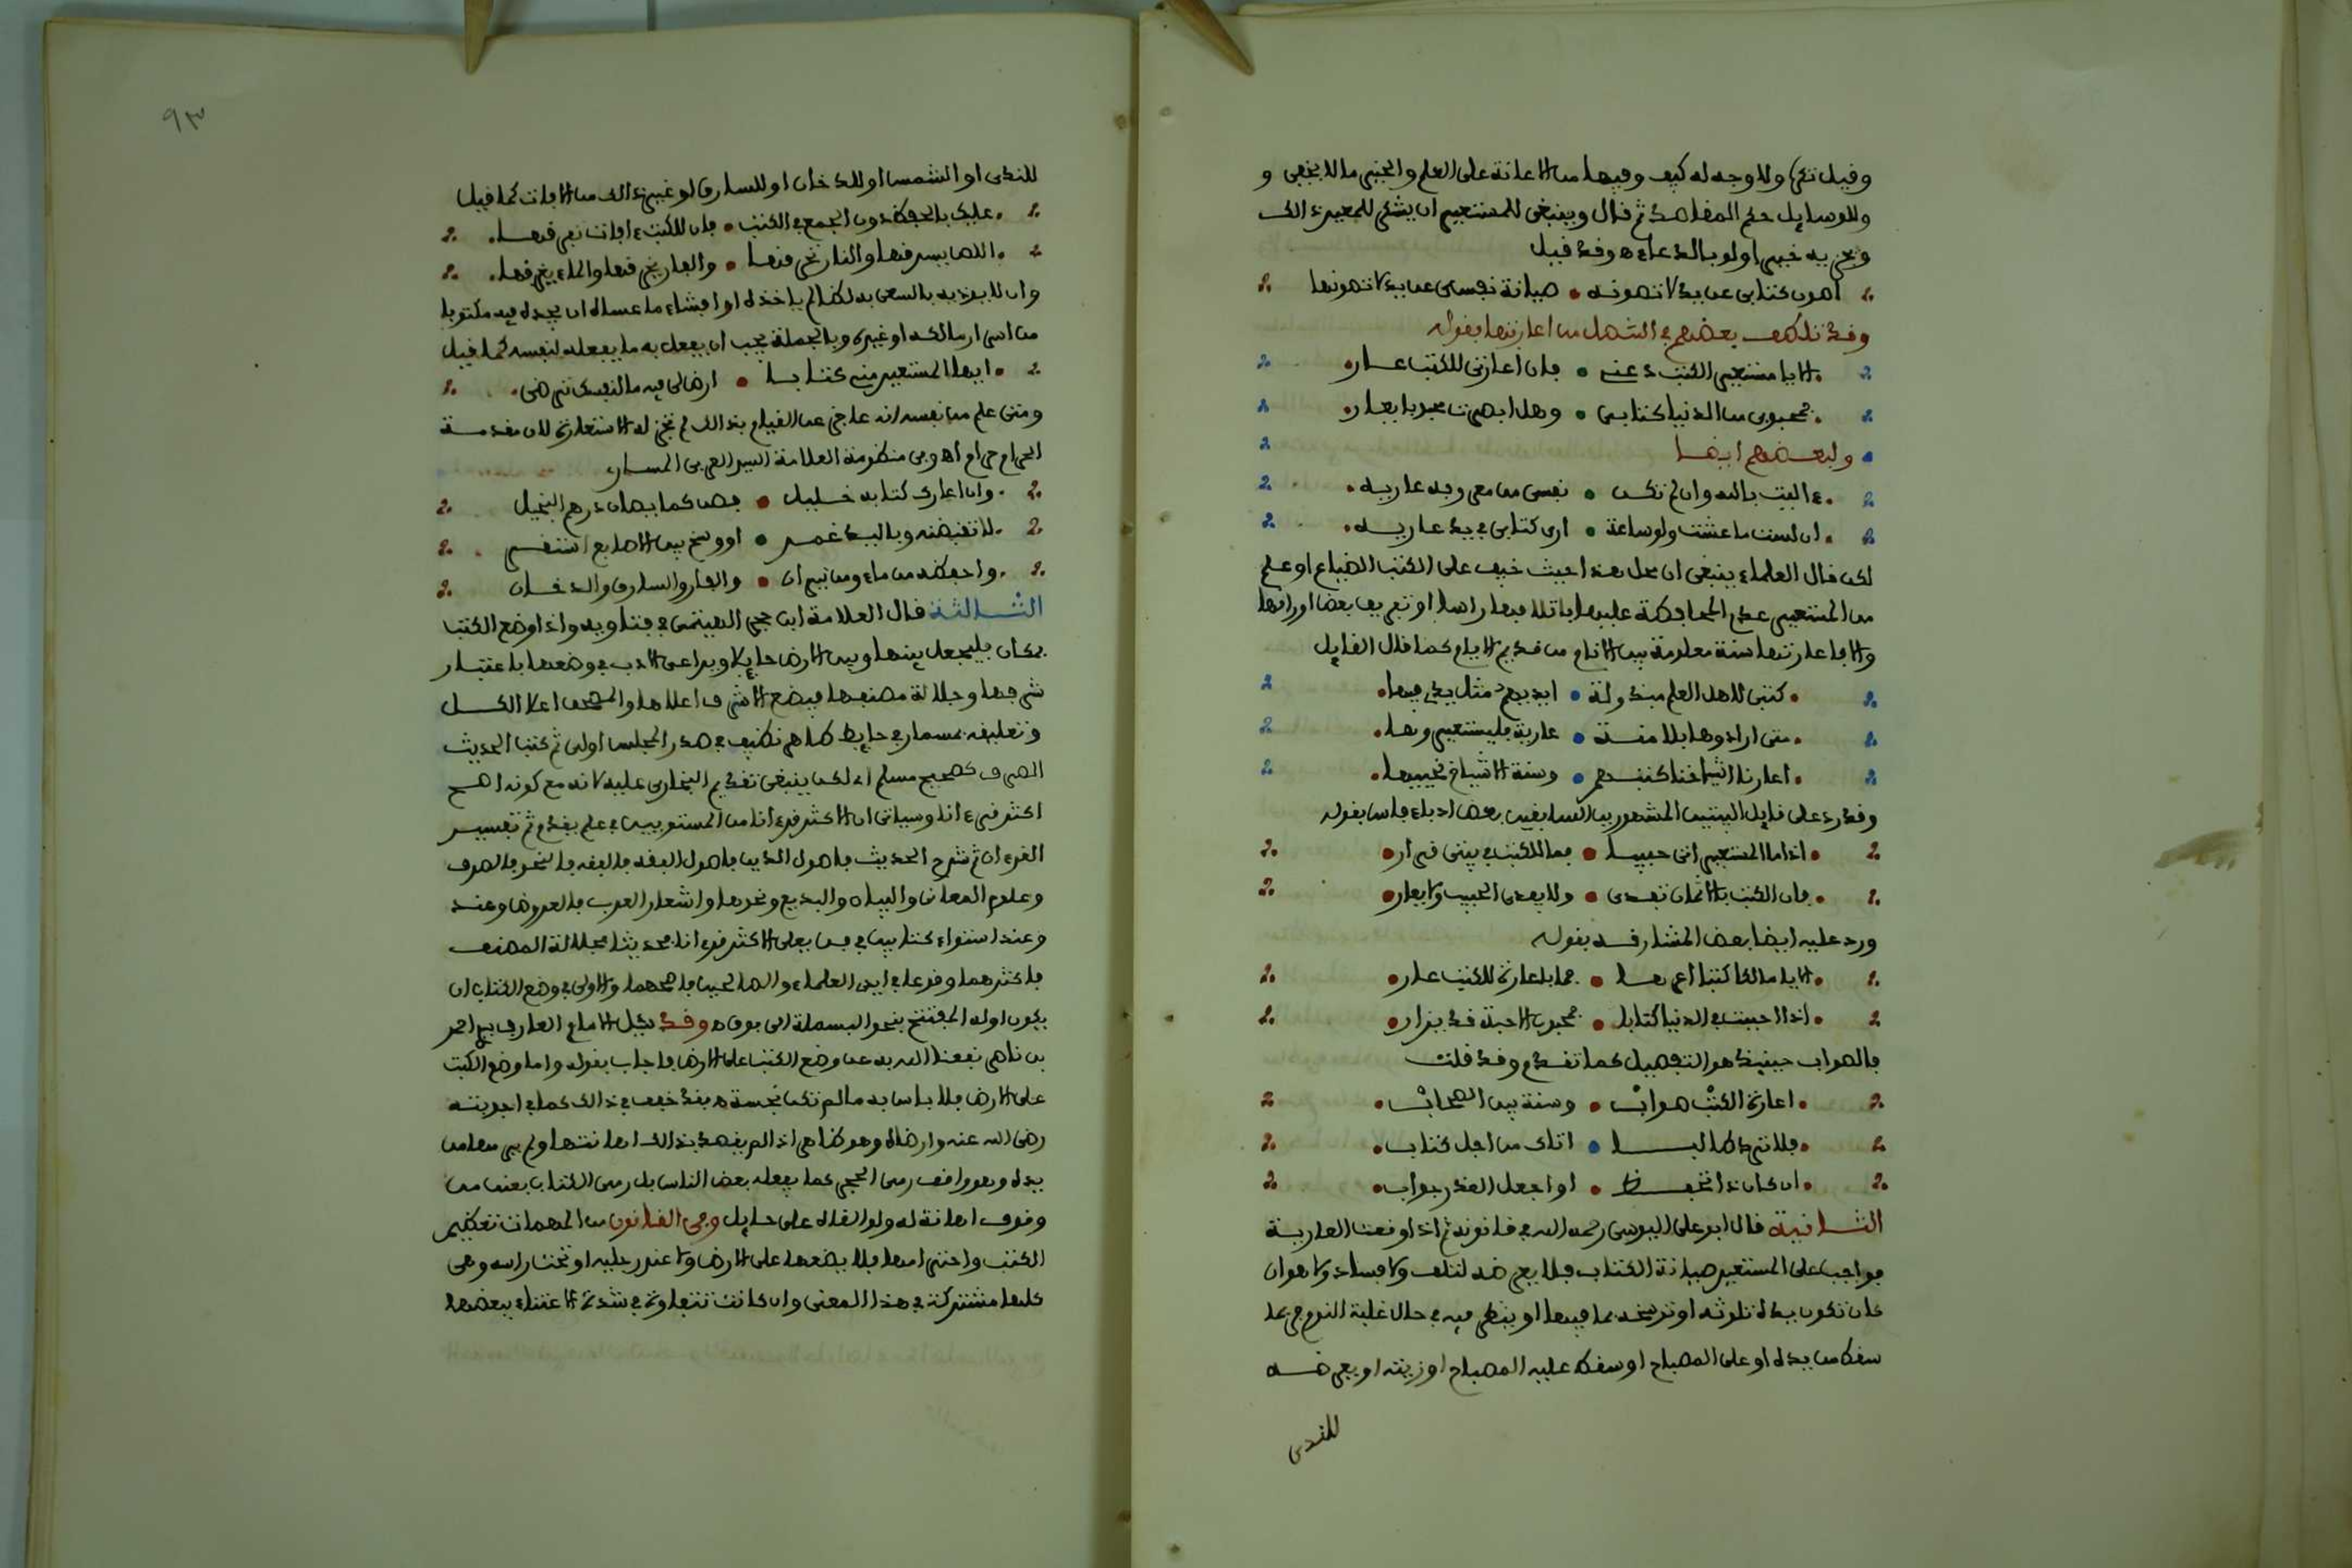 وقيل تكره ولا وجه له كيف وفيها من الاعانة على العلم والخير ما لا يخفى و
وللوسايل حكم المقاصد ثم قال وينبغي للمستعير ان يشكر للمعير ذالك
ويجزيه خيرا ولو بالدعاء ه وقد قيل
اصون كتابي عن يد لا تصونه • صيانة نفسي عن يد لا تصونها
وقد تلطف بعضهم في التنصل من اعارتها بقوله
الا يا مستعير الكتب دعني • فان اعارتي للكتب عار
فمحبوبي من الدنيا كتابي • وهل ابصرت محبوبا يعار
ولبعضهم ايضا
ءاليت بالله وان لم تكن • نفسي من معروفه عاريه
ان لست ما عشت ولو ساعة • ارى كتابي في يد عاريه
لكن قال العلماء ينبغي ان محل هذا حيث خيف على الكتب الضياع او علم
من المستعير عدم المحافظة عليها باتلافها راسا او تفريق بعض اوراقها
والا فاعارتها سنة معلومة بين الانام من قديم الايام كما قال القايل
كتبي لاهل العلم مبذولة • ايديهم مثل يدي فيها
متى ارادوها بلا منة • عارية فليستعيروها
اعارنا اشياخنا كتبهم • وسنة الاشياخ نحييها
وقد رد على قايل البيتين المشهورين السابقين بعض ادباء فاس بقوله
اذا ما المستعير اتى حبيبا • فما للكتب في بيتي قرار
فان الكتب بالاثمان تفدى • ولا يفدى الحبيب ولا يعار
ورد عليه ايضا بعض المشارقة بقوله
الا يا مالكا كتبا اعرها • فما باعارة للكتب عار
اذا احببت في الدنيا كتابا • فمحبوب الاحبة قد يزار
فالصواب حينيذ هو التفصيل كما تقدم وقد قلت
اعارة الكتب صواب • وسنة بين الصحاب
فلا ترد طالبا • اتاك من اجل كتاب
ان كان ذا تحفظ • او اجعل العذر جواب
الثانية قال ابو علي اليوسي رحمه الله في قانونه ثم اذا وقعت العارية
فواجب على المستعير صيانة الكتاب فلا يعرضه لتلف ولا فساد ولا هوان
كان تكون يداه تلوثه او توسخه بما فيها او ينظر فيه في حال غلبة النوم فربما
سقط من يده او على المصباح او سقط عليه المصباح او زيته او يعرضه
للندى
٩٣
للندى او الشمس او للدخان او للسارق او غير ذالك من الافات كما قيل
عليك بالحفظ دون الجمع في الكتب • فان للكتب ءافات تفرقها
اللص يسرقها والنار تحرقها • والفار يخرقها والماء يغرقها
وان لا يوذيه بالسعي به لظالم ياخذه او افشاء ما عساه ان يجده فيه مكتوبا
من اسرار مالكه او غيره وبالجملة يجب ان يفعل به ما يفعله لنفسه كما قيل
ايها المستعير مني كتابا • ارض لي فيه ما لنفسك ترضى
ومتى علم من نفسه انه عاجز عن القيام بذالك لم تجز له الاستعارة لان مقدمة
الحرام حرام اه وفي منظومة العلامة السيد العربي المساري
وان اعارك كتابه خليل • فصن كما يصان درهم البخيل
لا تقبضنه وباليد غمر • او وسخ بين الاصابع استقر
واحفظه من ماء ومن نيران • والفار والسارق والدخان
الثالثة قال العلامة ابن حجر الهيتمي في فتاويه واذا وضع الكتب
بمكان فليجعل بينها وبين الارض حايلا ويراعي الادب في وضعها باعتبار
شرفها وجلالة مصنفها فيضع الاشرف اعلاها والمصحف اعلا الكل
وتعليقه بمسمار في حايط طاهر نظيف في صدر المجلس اولى ثم كتب الحديث
الصرف كصحيح مسلم اه لكن ينبغي تقديم البخاري عليه لانه مع كونه اصح
اكثر قرءانا وسياتي ان الاكثر قرءانا من المستويين في علم يقدم ثم تفسير
القرءان ثم شرح الحديث فاصول الدين فاصول الفقه فالفقه فالنحو فالصرف
وعلوم المعاني والبيان والبديع ونحوها واشعار العرب فالعروض وعند
وعند استواء كتابين في فن يعلى الاكثر قرءانا فحديثا فجلالة المصنف
فاكثرهما وقوعا في ايدي العلماء والصالحين فاصحهما والاولى في وضع الكتاب ان
يكون اوله المفتتح بنحو البسملة الى فوق ه وقد سيل الامام العارف سيدي احمد
بن ناصر نفعنا الله به عن وضع الكتب على الارض فاجاب بقوله واما وضع الكتب
على الارض فلا باس به ما لم تكن نجسة ه فقد خفف في ذالك كما في اجوبته
رضي الله عنه وارضاه وهو ظاهر اذا لم يقصد بذالك اهانتها ولم يرمها من
يده وهو واقف رمي الحجر كما يفعله بعض الناس بل رمي الكتاب بعنف من
وقوف اهانة له ولو القاه على حايل وفي القانون من المهمات تعظيم
الكتب واحترامها فلا يضعها على الارض ولا عند رجليه او تحت راسه وهي
كلها مشتركة في هذا المعنى وان كانت تتفاوت في شدة الاعتناء ببعضها